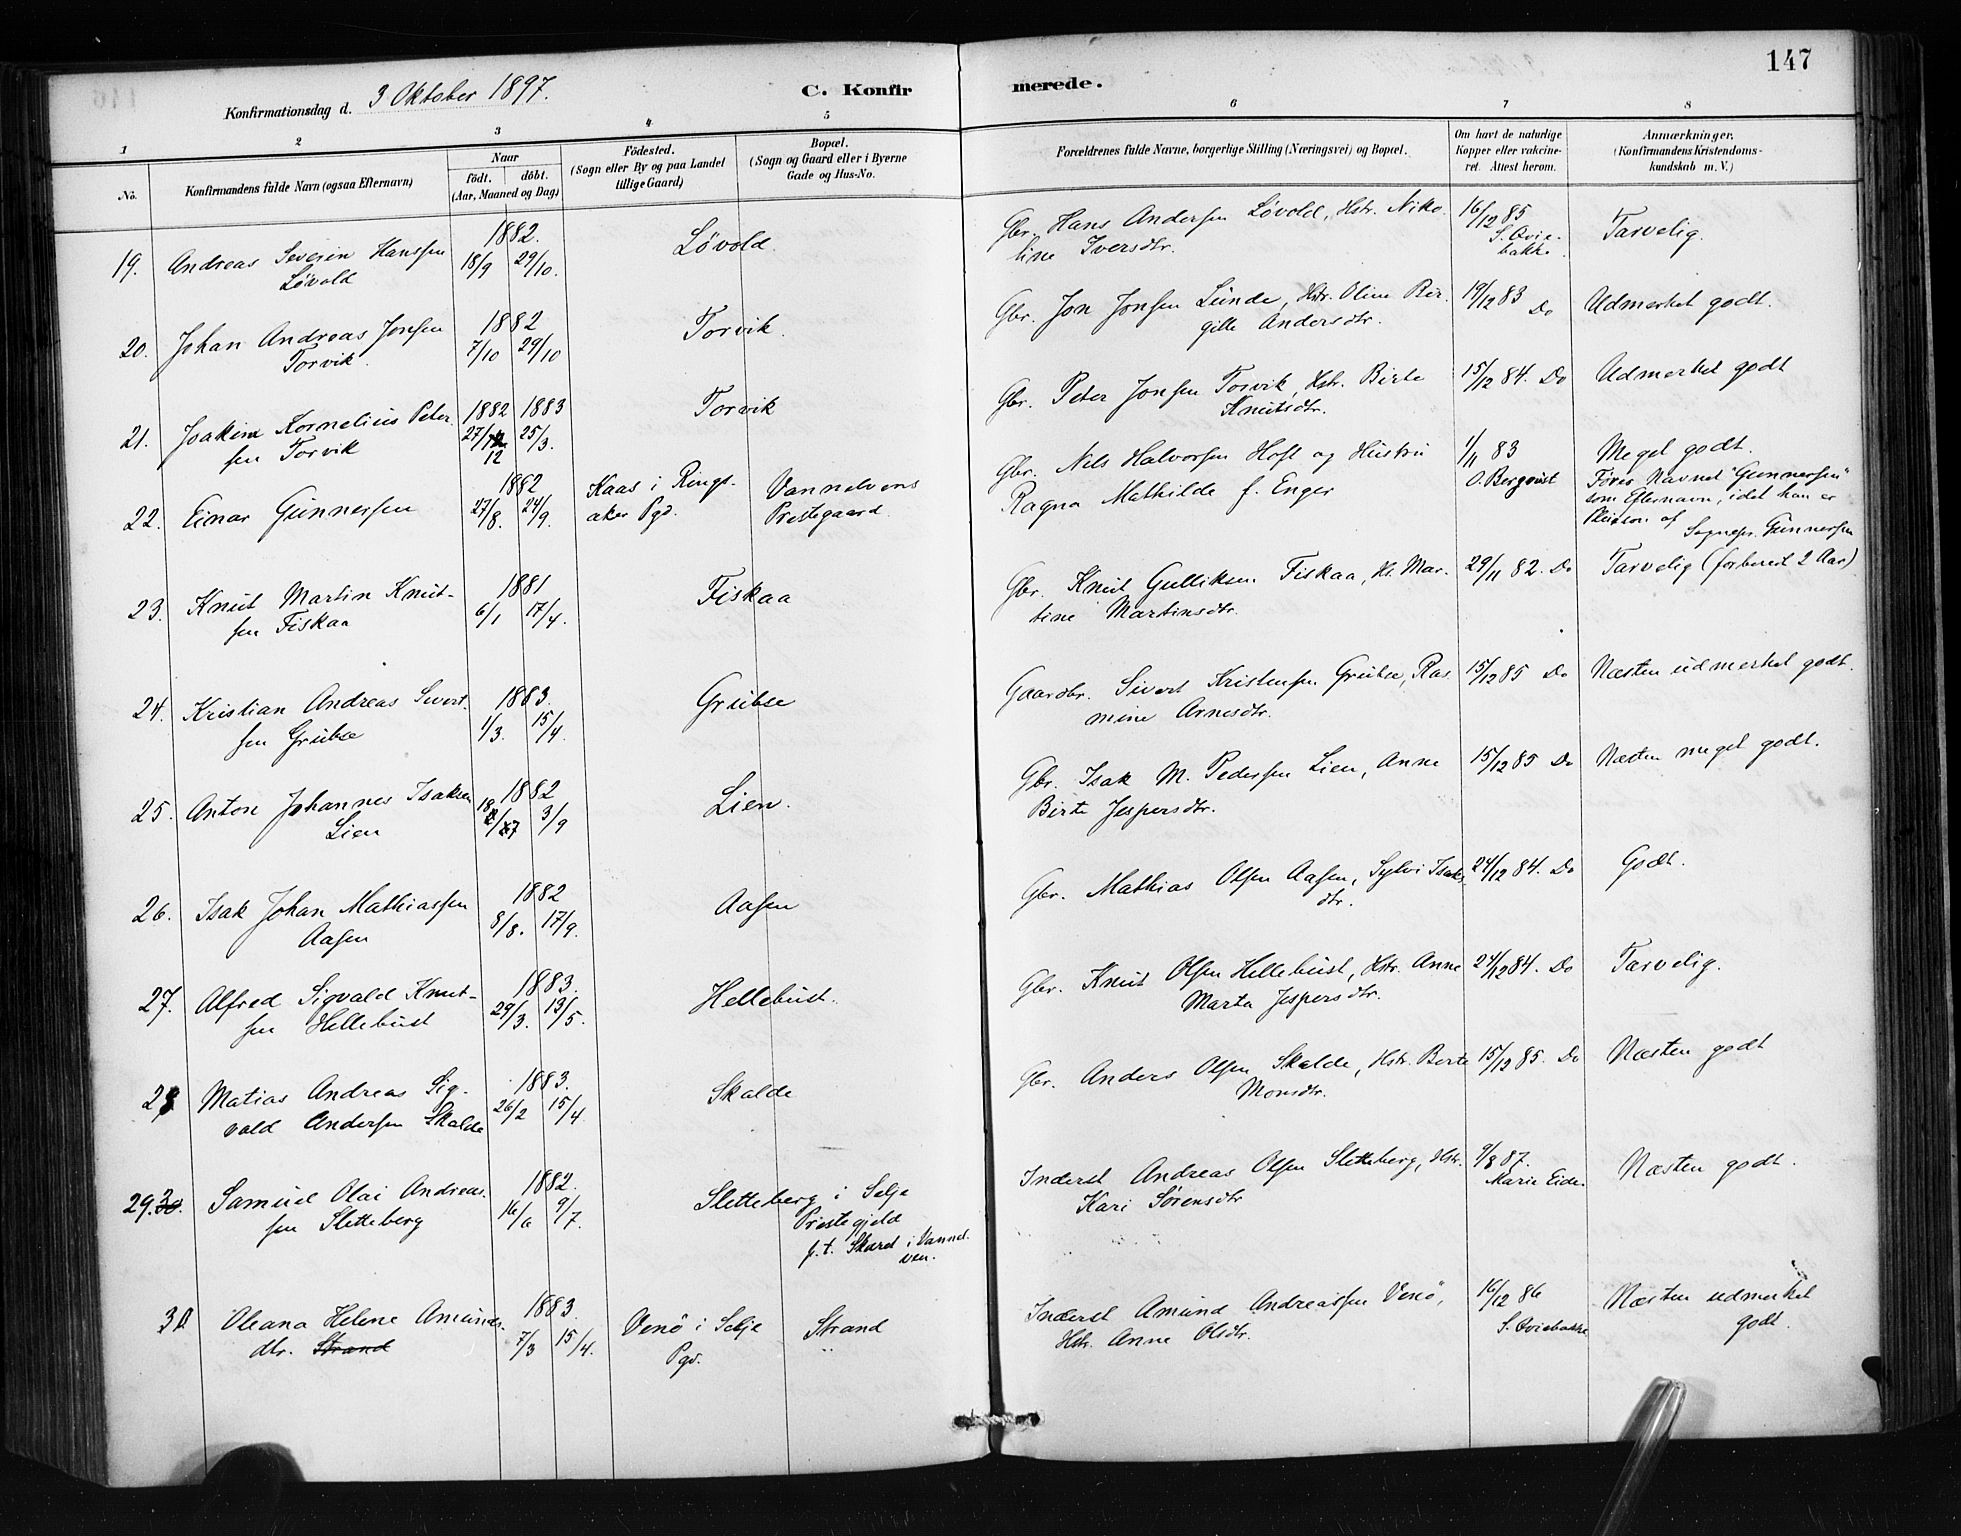 147
Konfirmationsdag d. 3 Oktober 1897.
C. Konfirmerede.
1 2 3 4 5 6 7 8
No.
Konfirmandens fulde Navn (ogsaa Efternavn)
Naar
født. døbt.
(Aar, Maaned og Dag)
Fødested.
(Sogn eller By og paa Landet
tillige Gaard)
Bopæl.
(Sogn og Gaard eller i Byerne
Gade og Hus-No.
Forældrenes fulde Navne, borgerlige Stilling (Næringsvei) og Bopæl.
Om havt de naturlige
Kopper eller vakcine-
ret. Attest herom.
Anmærkninger.
(Konfirmandens Kristendoms-
kundskab m. V.)
19. Andreas Severin Hanssen
Løvold
1882.
18/9 29/10.
Løvold.
Gbr. Hans Andersen Løvold, Hstr. Niko-
line Iversdtr.
16/12 85
S. Qvie-
bakke.
Tarvelig.
20. Johan Andreas Jonsen
Torvik.
1882
7/10 29/10
Torvik.
Gbr. Jon Jonsen Lunde, Hstr. Oline Bir-
gitte Andersdtr.
19/12 83 Do
Udmerket godt.
21. Joakim Kornelius Peter-
sen Torvik
1882 1883
27/12 25/3.
12
Torvik
Gbr. Peter Jonsen Torvik, Hstr. Birte
Knutsdtr.
15/12 84. Do
Udmerket godt
22. Einar Gunnersen
1882
27/8. 24/9.
Kaas i Rings-
aker Pgd.
Vannelvens
Prestegaard.
Gbr. Nils Halvorsen Hoft og Hustru
Ragna Mathilde f. Enger
1/11 83
O. Bergqvist
Meget godt.
Fører Navnet "Gunnersen"
som Efternavn, idet han er
Pleiesøn af
Sognepr. Gunnersen
23. Knut Martin Knut-
sen Fiskaa
1881
6/1 17/4.
Fiskaa
Gbr. Knut Gulliksen Fiskaa, H. Mar-
tine Martinsdtr.
29/11 82. Do
Tarvelig (forberedt 2 Aar)
24. Kristian Andreas Sivert-
sen Grubse
1883.
1/3. 15/4.
Grubse
Gaardbr. Sivert Kristensen Grubse, Ras-
mine Arnesdtr.
15/12 85 Do
Næsten udmerket godt.
25. Anton Johannes Isaksen
Lien
1882
18/7 3/9
Lien.
Gbr. Isak M. Pedersen Lien, Anne
Birte Jespersdtr.
15/12 85 Do
Næsten meget godt.
26. Isak Johan Mathiassen
Aasen
1882
8/8. 17/9.
Aasen
Gbr. Mathias Olsen Aasen, Sylvi Isaks-
dtr.
24/12 84. Do
Godt.
27. Alfred Sigvald Knut-
sen Hellebust
1883.
29/3. 13/5.
Hellebust.
Gbr. Knut Olsen Hellebust, Hstr. Anne
Marta Jespersdtr.
24/12 84. Do
Tarvelig.
28 Matias Andreas Sig-
vald Andersen Skalde
1883.
26/2 15/4.
Skalde
Gbr. Anders Olsen Skalde, Hstr. Berte
Monsdtr.
15/12 85. Do
Næsten godt
29. 30. Samuel Olai Andreas-
sen Sletteberg
1882.
16/6 9/7.
Sletteberg i Selje
Prestegjeld
p.t. Skard i Vannel-
ven.
Inderst Andreas Olsen Sletteberg, Hstr.
Kari Sørensdtr
9/8 87.
Marie Eide.
Næsten godt.
30 Oleana Helene Amunds-
dtr. Strand
1883.
7/3 15/4.
Venø i Selje
Pgd.
Strand
Inderst Amund Andreassen Venø,
Hstr. Anne Olsdtr.
16/12 86
S. Qviebakke
Næsten udmerket
godt.